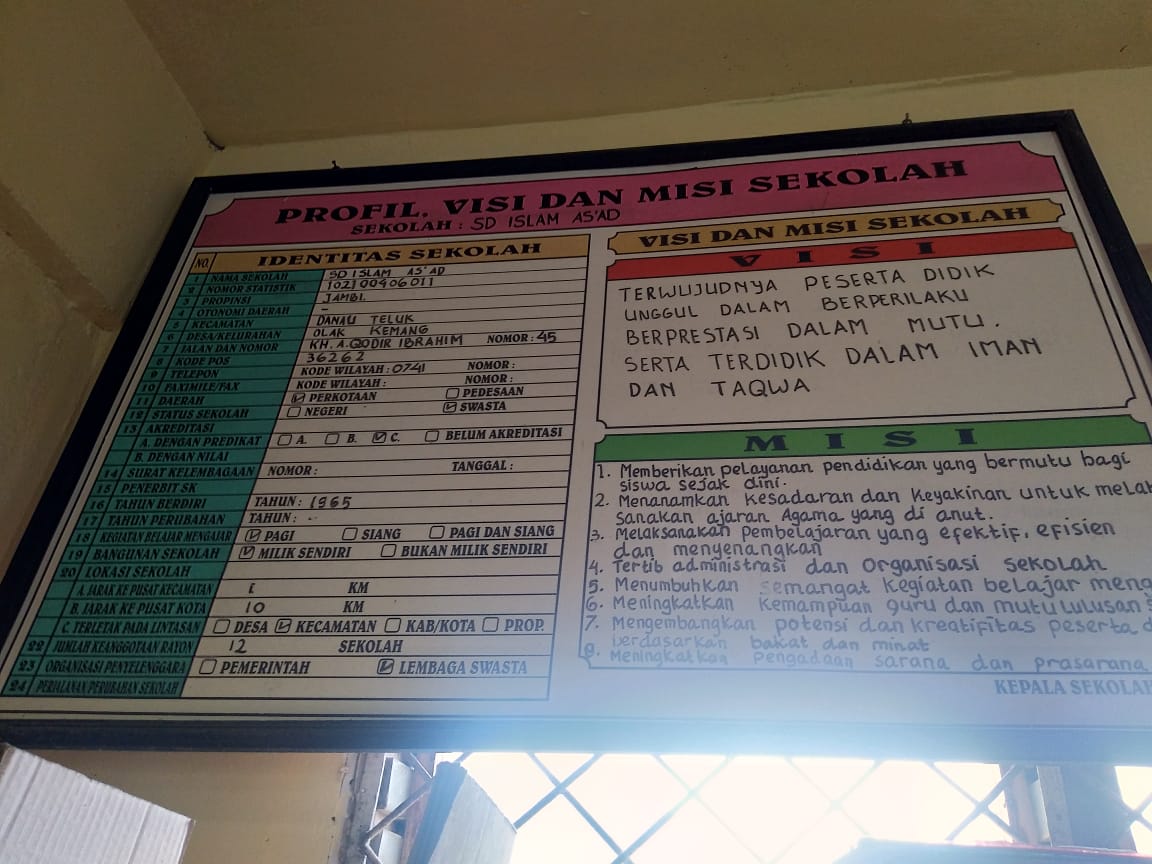 PROFIL, VISI DAN MISI SEKOLAH
SEKOLAH : SD ISLAM AS'AD
NO. IDENTITAS SEKOLAH
1 NAMA SEKOLAH SD ISLAM AS'AD
2 NOMOR STATISTIK 102100406011
3 PROPINSI JAMBI
4 OTONOMI DAERAH -
5 KECAMATAN DANAU TELUK
6 DESA/KELURAHAN OLAK KEMANG
7 JALAN DAN NOMOR KH. A. QODIR IBRAHIM NOMOR: 45
8 KODE POS 36262
9 TELEPON KODE WILAYAH : 0741 NOMOR :
10 FAXIMILE/FAX KODE WILAYAH : NOMOR :
11 DAERAH PERKOTAAN PEDESAAN
12 STATUS SEKOLAH NEGERI SWASTA
13 AKREDITASI
A. DENGAN PREDIKAT A. B. C. BELUM AKREDITASI
B. DENGAN NILAI
14 SURAT KELEMBAGAAN NOMOR : TANGGAL :
15 PENERBIT SK
16 TAHUN BERDIRI TAHUN : 1965
17 TAHUN PERUBAHAN TAHUN : -
18 KEGIATAN BELAJAR MENGAJAR PAGI SIANG PAGI DAN SIANG
19 BANGUNAN SEKOLAH MILIK SENDIRI BUKAN MILIK SENDIRI
20 LOKASI SEKOLAH
A. JARAK KE PUSAT KECAMATAN 1 KM
B. JARAK KE PUSAT KOTA 10 KM
C. TERLETAK PADA LINTASAN DESA KECAMATAN KAB/KOTA PROP.
22 JUMLAH KEANGGOTAAN RAYON 12 SEKOLAH
23 ORGANISASI PENYELENGGARA PEMERINTAH LEMBAGA SWASTA
24 PERJALANAN PERUBAHAN SEKOLAH
VISI DAN MISI SEKOLAH
VISI
TERWUJUDNYA PESERTA DIDIK
UNGGUL DALAM BERPERILAKU
BERPRESTASI DALAM MUTU.
SERTA TERDIDIK DALAM IMAN
DAN TAQWA
MISI
1. Memberikan pelayanan pendidikan yang bermutu bagi
siswa sejak dini.
2. Menanamkan kesadaran dan keyakinan untuk melak
sanakan ajaran Agama yang di anut.
3. Melaksanakan pembelajaran yang efektif, efisien
dan menyenangkan
4. Tertib administrasi dan organisasi sekolah
5. Menumbuhkan semangat kegiatan belajar meng
6. Meningkatkan kemampuan guru dan mutu lulusan s
7. Mengembangkan potensi dan kreatifitas peserta d
berdasarkan bakat dan minat
8. Meningkatkan pengadaan sarana dan prasarana
KEPALA SEKOLAH